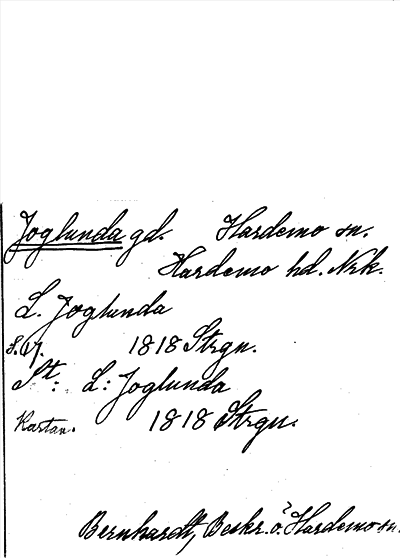 Joglunda gd. Hardemo sn.
Hardemo hd. Nrk.
L. Joglunda
s. 47. 1818 Strgn.
St: L: Joglunda
Kartan. 1818 Strgn.
Bernhardt, Beskr. ö. Hardemo sn.